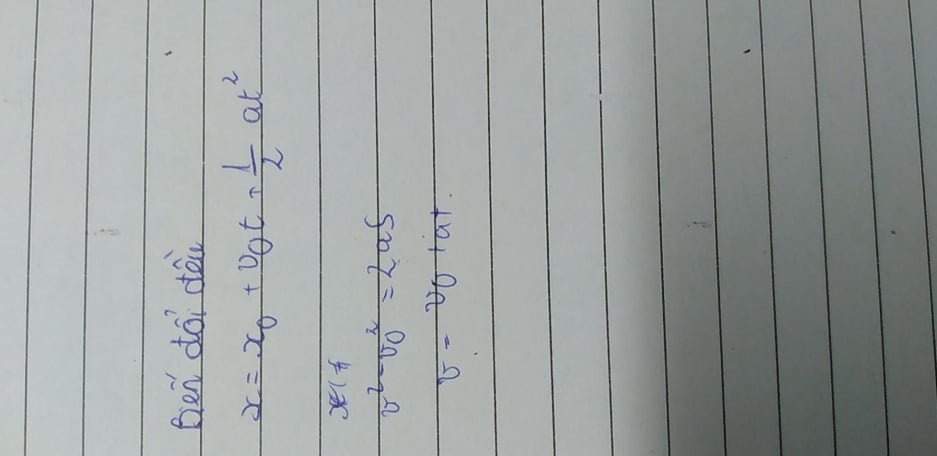 Biến đổi đều
x = x₀ + v₀t + 1/2 at²
v² - v₀² = 2as
v = v₀ + at.